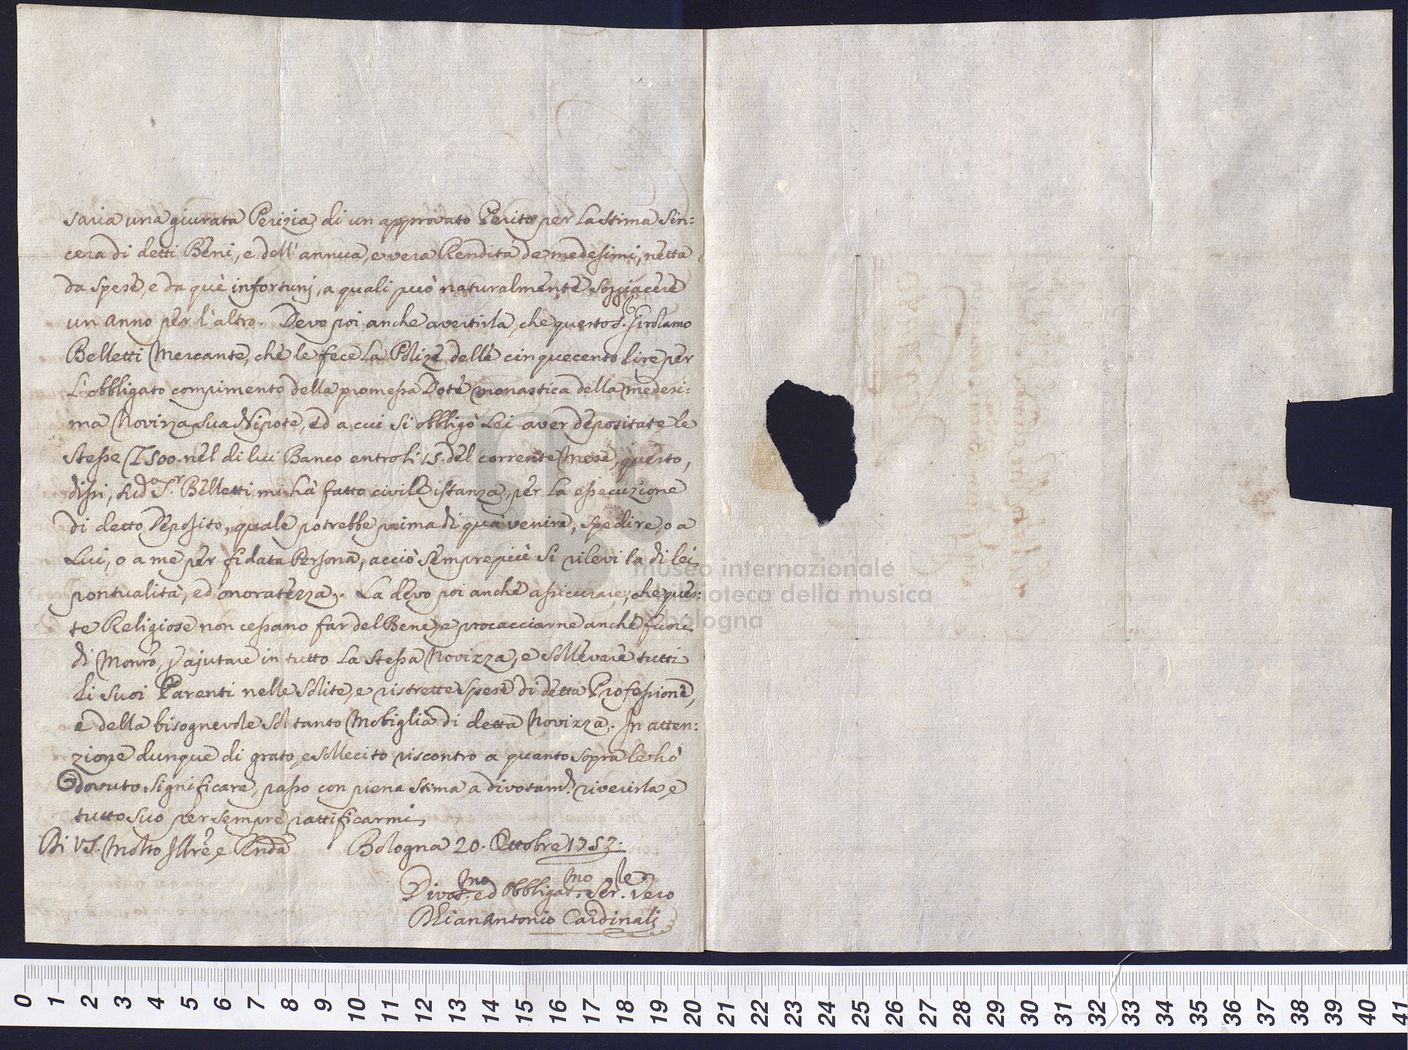 saria una giurata Perizia di un approvato Perito per la stima sin=
cera di detti Beni, e dell'annua, e vera Rendita de medesimi, netta
da spese, e da què infortunj, a quali può naturalmente soggiacere
un anno per l'altro. Devo poi anche avertirla, che questo S.r Girolamo
Belletti Mercante, che le fece la Poliza delle cinquecento lire per
l'obbligato compimento della promessa Dote monastica della medesi=
ma Novizza sua Nipote, ed a cui si obbligò Lei aver depositate le
stesse L 500. nel di lui Banco entro li 15. del corrente Mese, questo,
dissi, Sud.o S.r Belletti mi hà fatto civile istanza, per la essecuzione
di detto Deposito, quale potrebbe prima di quà venire, spedire, o a
Lui, o a me per fidata Persona, acciò sempre più si rilevi la di lei
pontualità, ed onoratezza. La devo poi anche assicurare, che ques:
te Religiose non cessano far del Bene, e procacciarne anche fuore
di Monro, p ajutare in tutto la stessa Novizza, e sollevare tutti
li suoi Parenti nelle solite, e ristrette spese di detta Professione,
e della bisognevole soltanto Mobiglia di detta Novizza. In atten:
zione dunque di grato, e sollecito riscontro a quanto sopra le hò
dovuto significare, passo con piena stima a divotam.te riverirla, e
tutto suo per sempre rattificarmi
Di VS. Molto Illre, e Rnda Bologna 20. Ottobre 1753.
Divot.mo ed Obbligat.mo Ser.le Vero
Gianantonio Cardinali
museo internazionale
biblioteca della musica
bologna
0 1 2 3 4 5 6 7 8 9 10 11 12 13 14 15 16 17 18 19 20 21 22 23 24 25 26 27 28 29 30 31 32 33 34 35 36 37 38 39 40 41